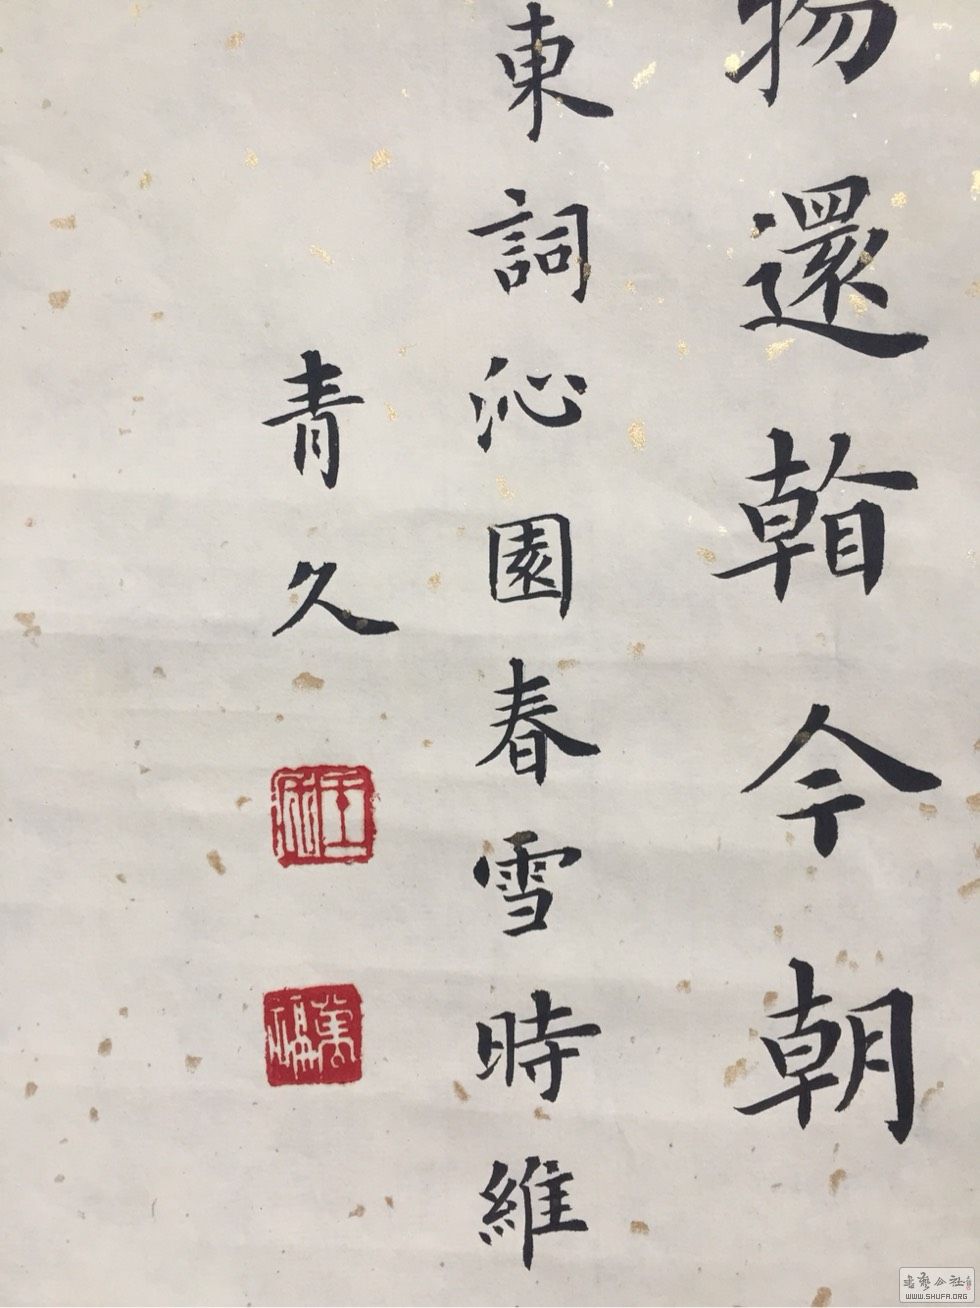 物還看今朝
東詞沁園春雪時維
青久
書藝公社
WWW.SHUFA.ORG